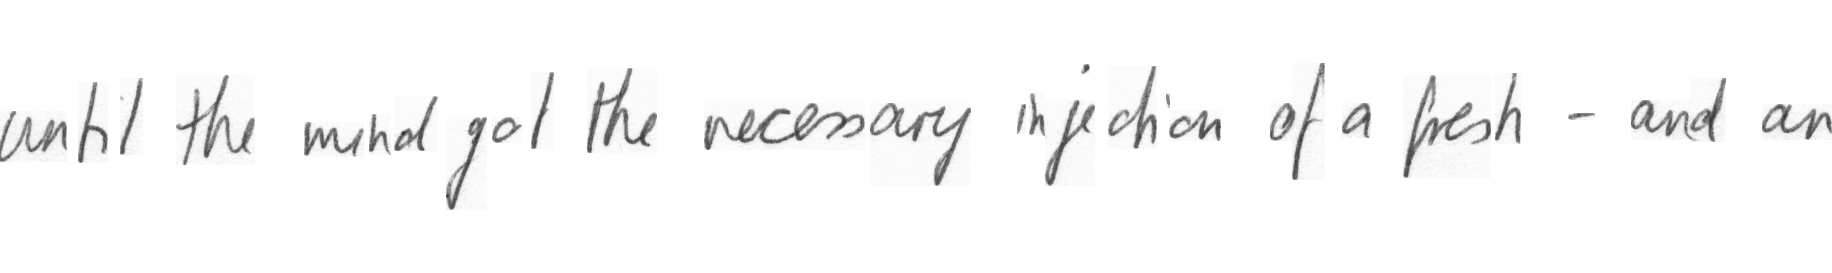 until the mind got the necessary injection of a fresh - and an